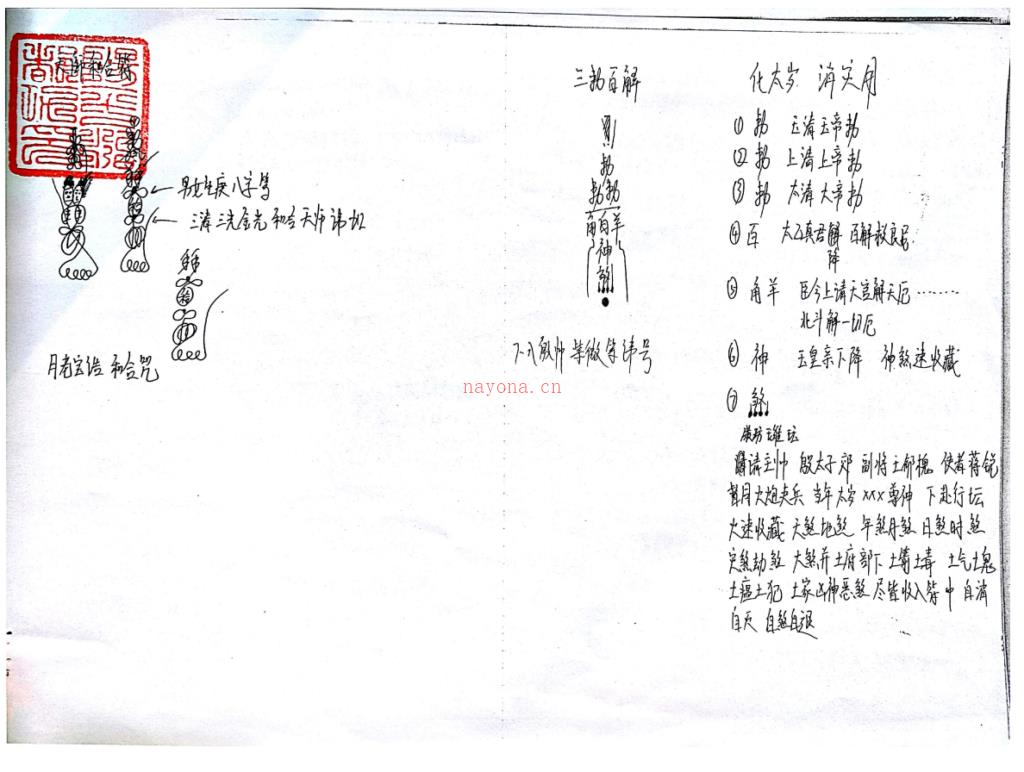 天师和合符
男女生庚八字号
三清三光金光和合天师讳切
月老宝诰 和合咒
三勅百解
勅
勅勅
角百羊
神
煞
nayona.cn
化太岁 消灾用
① 勅 玉清玉帝勅
② 勅 上清上帝勅
③ 勅 太清大帝勅
④ 百 太乙真君解 百解救良民
降
⑤ 角羊 臣今上请天罡解天厄………
北斗解一切厄
⑥ 神 玉皇亲下降 神煞速收藏
⑦ 煞
请主帅 殷太子邓 副将土郁槐 使者蒋锐
当年太岁 xxx尊神 下赴行坛
火速收藏 天煞地煞 年煞月煞 日煞时煞
灾煞劫煞 大煞并土府部下 土毒 土气土鬼
土瘟土犯 土家凶神恶煞 尽皆收入符中 自消
自灭 自煞自退